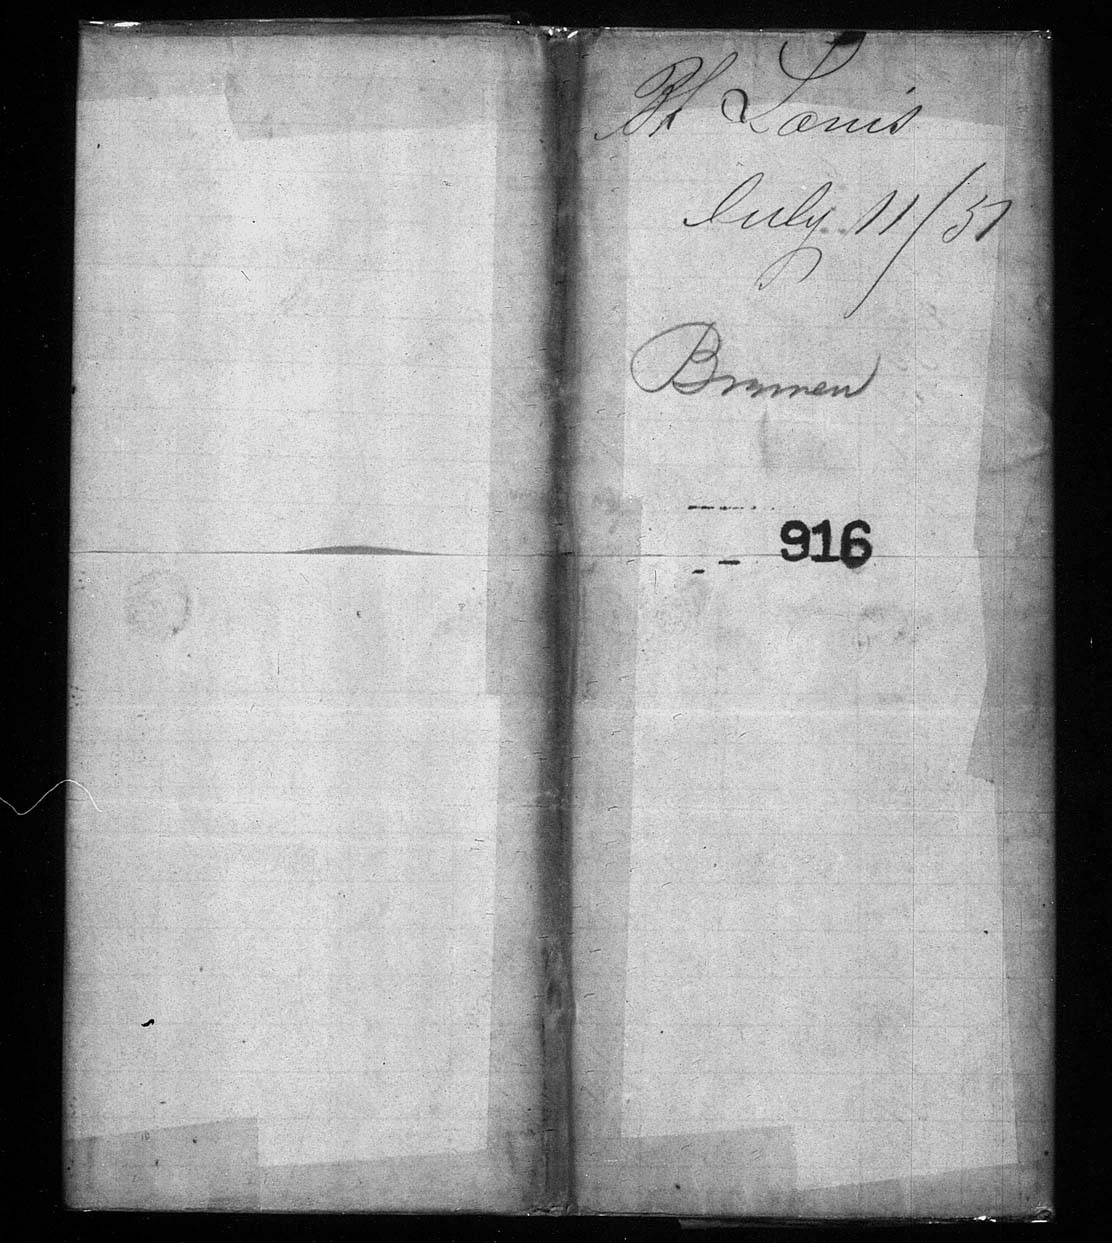 St Louis
July 11/51
Bremen
916